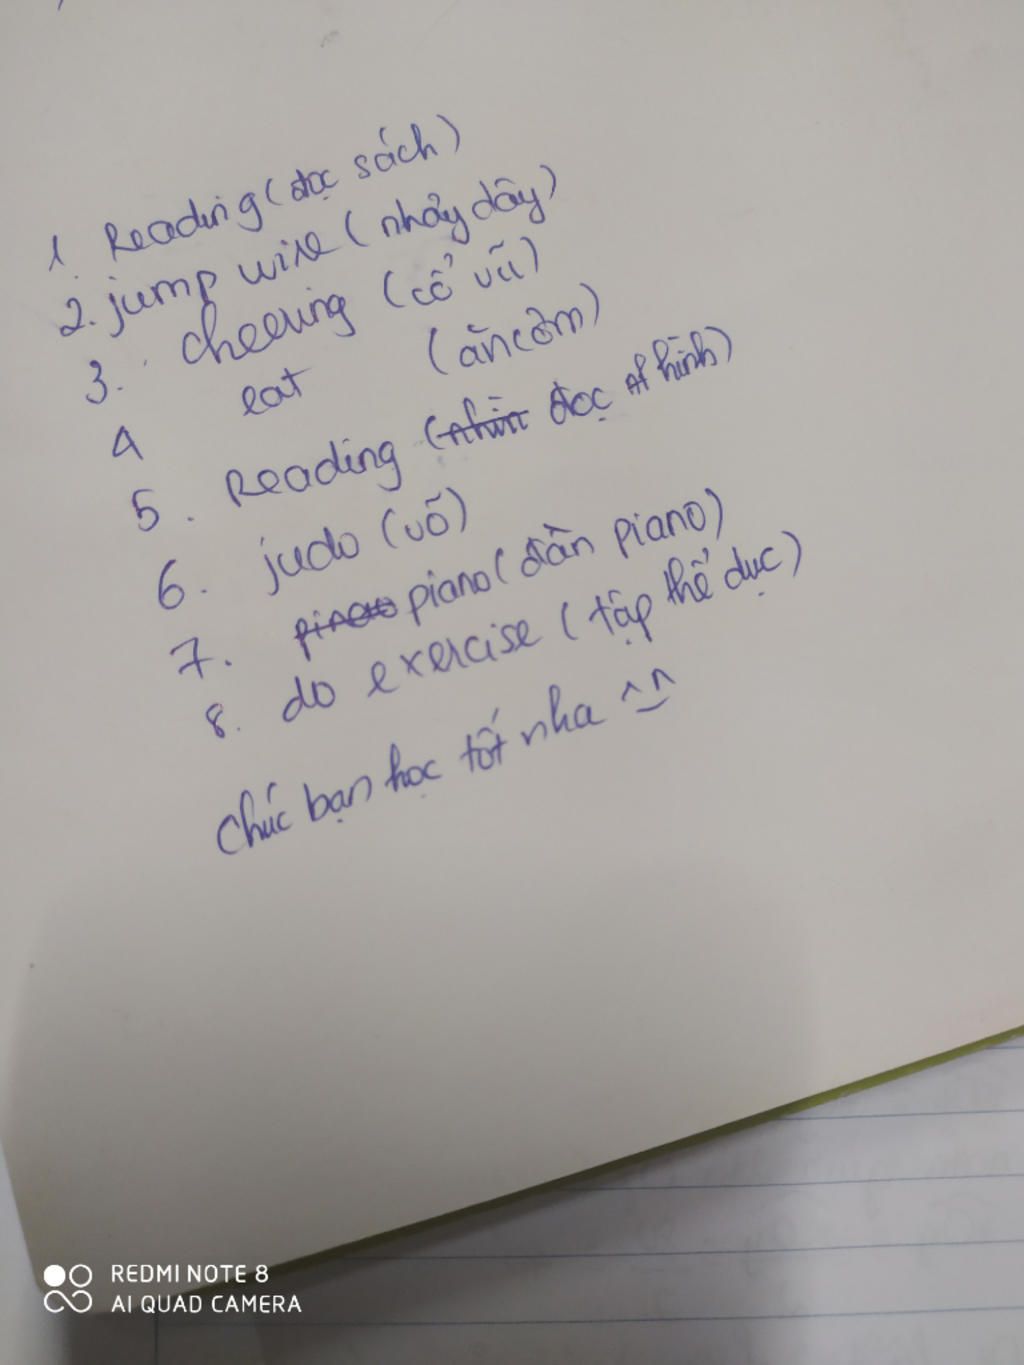 1. Reading (đọc sách)
2. jump wire (nhảy dây)
3. cheering (cổ vũ)
4 eat (ăn cơm)
5. Reading (nhìn đọc hình)
6. judo (võ)
7. piano (đàn piano)
8. do exercise (tập thể dục)
chúc bạn học tốt nha ^^
REDMI NOTE 8
AI QUAD CAMERA